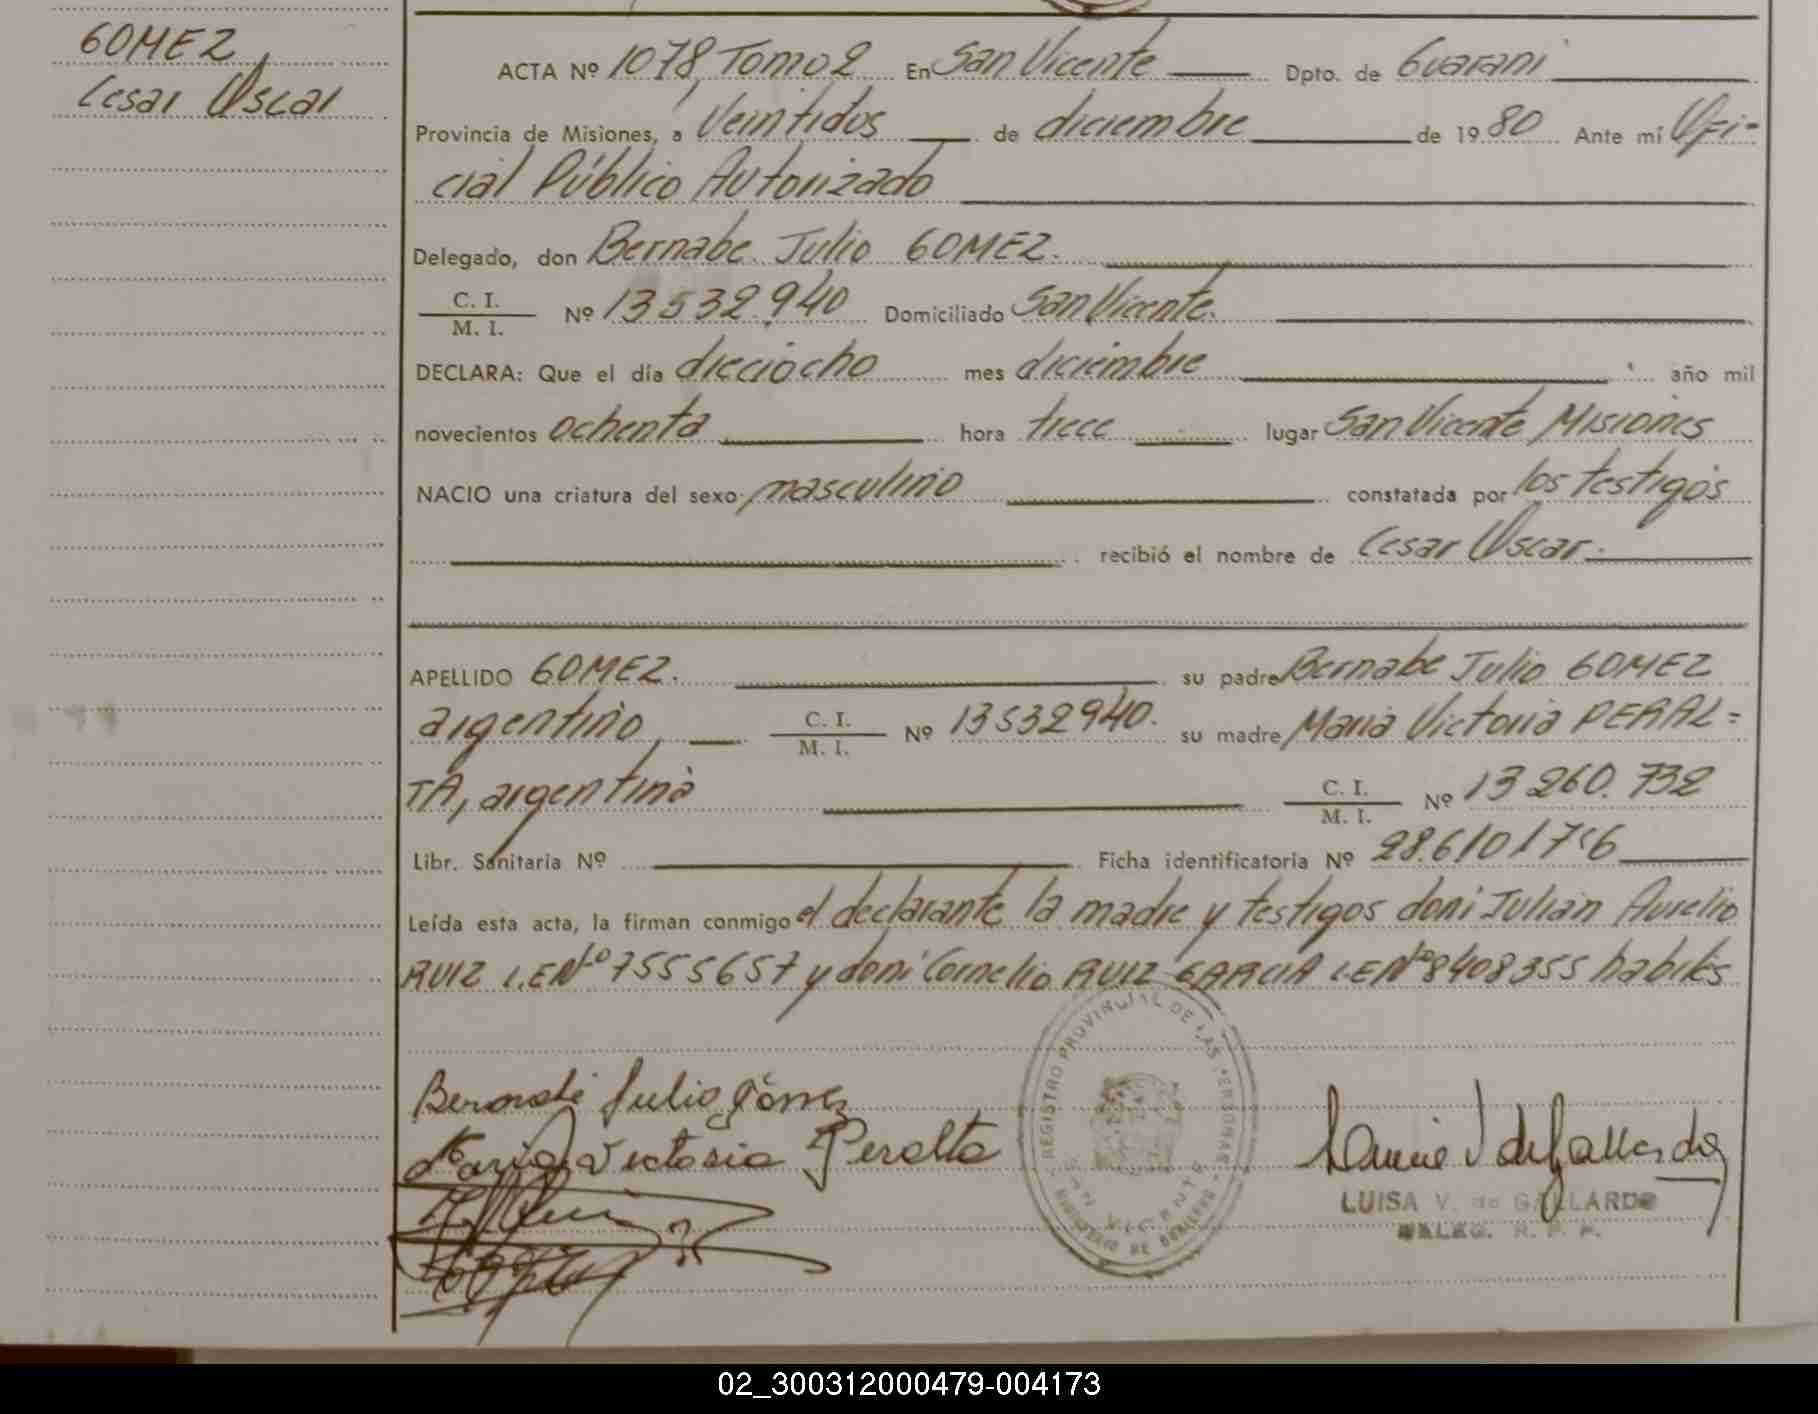 GOMEZ,
Cesar Oscar
ACTA Nº 1078, Tomo 2 En San Vicente Dpto. de Guarani
Provincia de Misiones, a Veintidos de diciembre de 1980 Ante mí Ofi-
cial Público Autorizado
Delegado, don Bernabe Julio GOMEZ.
C. I.
M. I. Nº 13532.940 Domiciliado San Vicente.
DECLARA: Que el día dieciocho mes diciembre año mil
novecientos ochenta hora trece lugar San Vicente Misiones
NACIO una criatura del sexo masculino constatada por los testigos
recibió el nombre de Cesar Oscar.
APELLIDO GOMEZ. su padre Bernabe Julio GOMEZ
argentino, C. I.
M. I. Nº 13532940. su madre Maria Victoria PERAL=
TA, argentina C. I.
M. I. Nº 13260.732
Libr. Sanitaria Nº Ficha identificatoria Nº
Leída esta acta, la firman conmigo el declarante la madre y testigos don: Julian Aurelio
RUIZ L.E Nº 7555657 y don: Cornelio RUIZ GARCIA L.E Nº 8408355 habiles
Bernabé Julio Gómez
Maria Victoria Peralta
REGISTRO PROVINCIAL DE LAS PERSONAS
SAN VICENTE
MINISTERIO DE GOBIERNO
LUISA V. de GALLARDO
DELEG. R. P. P.
02_300312000479-004173